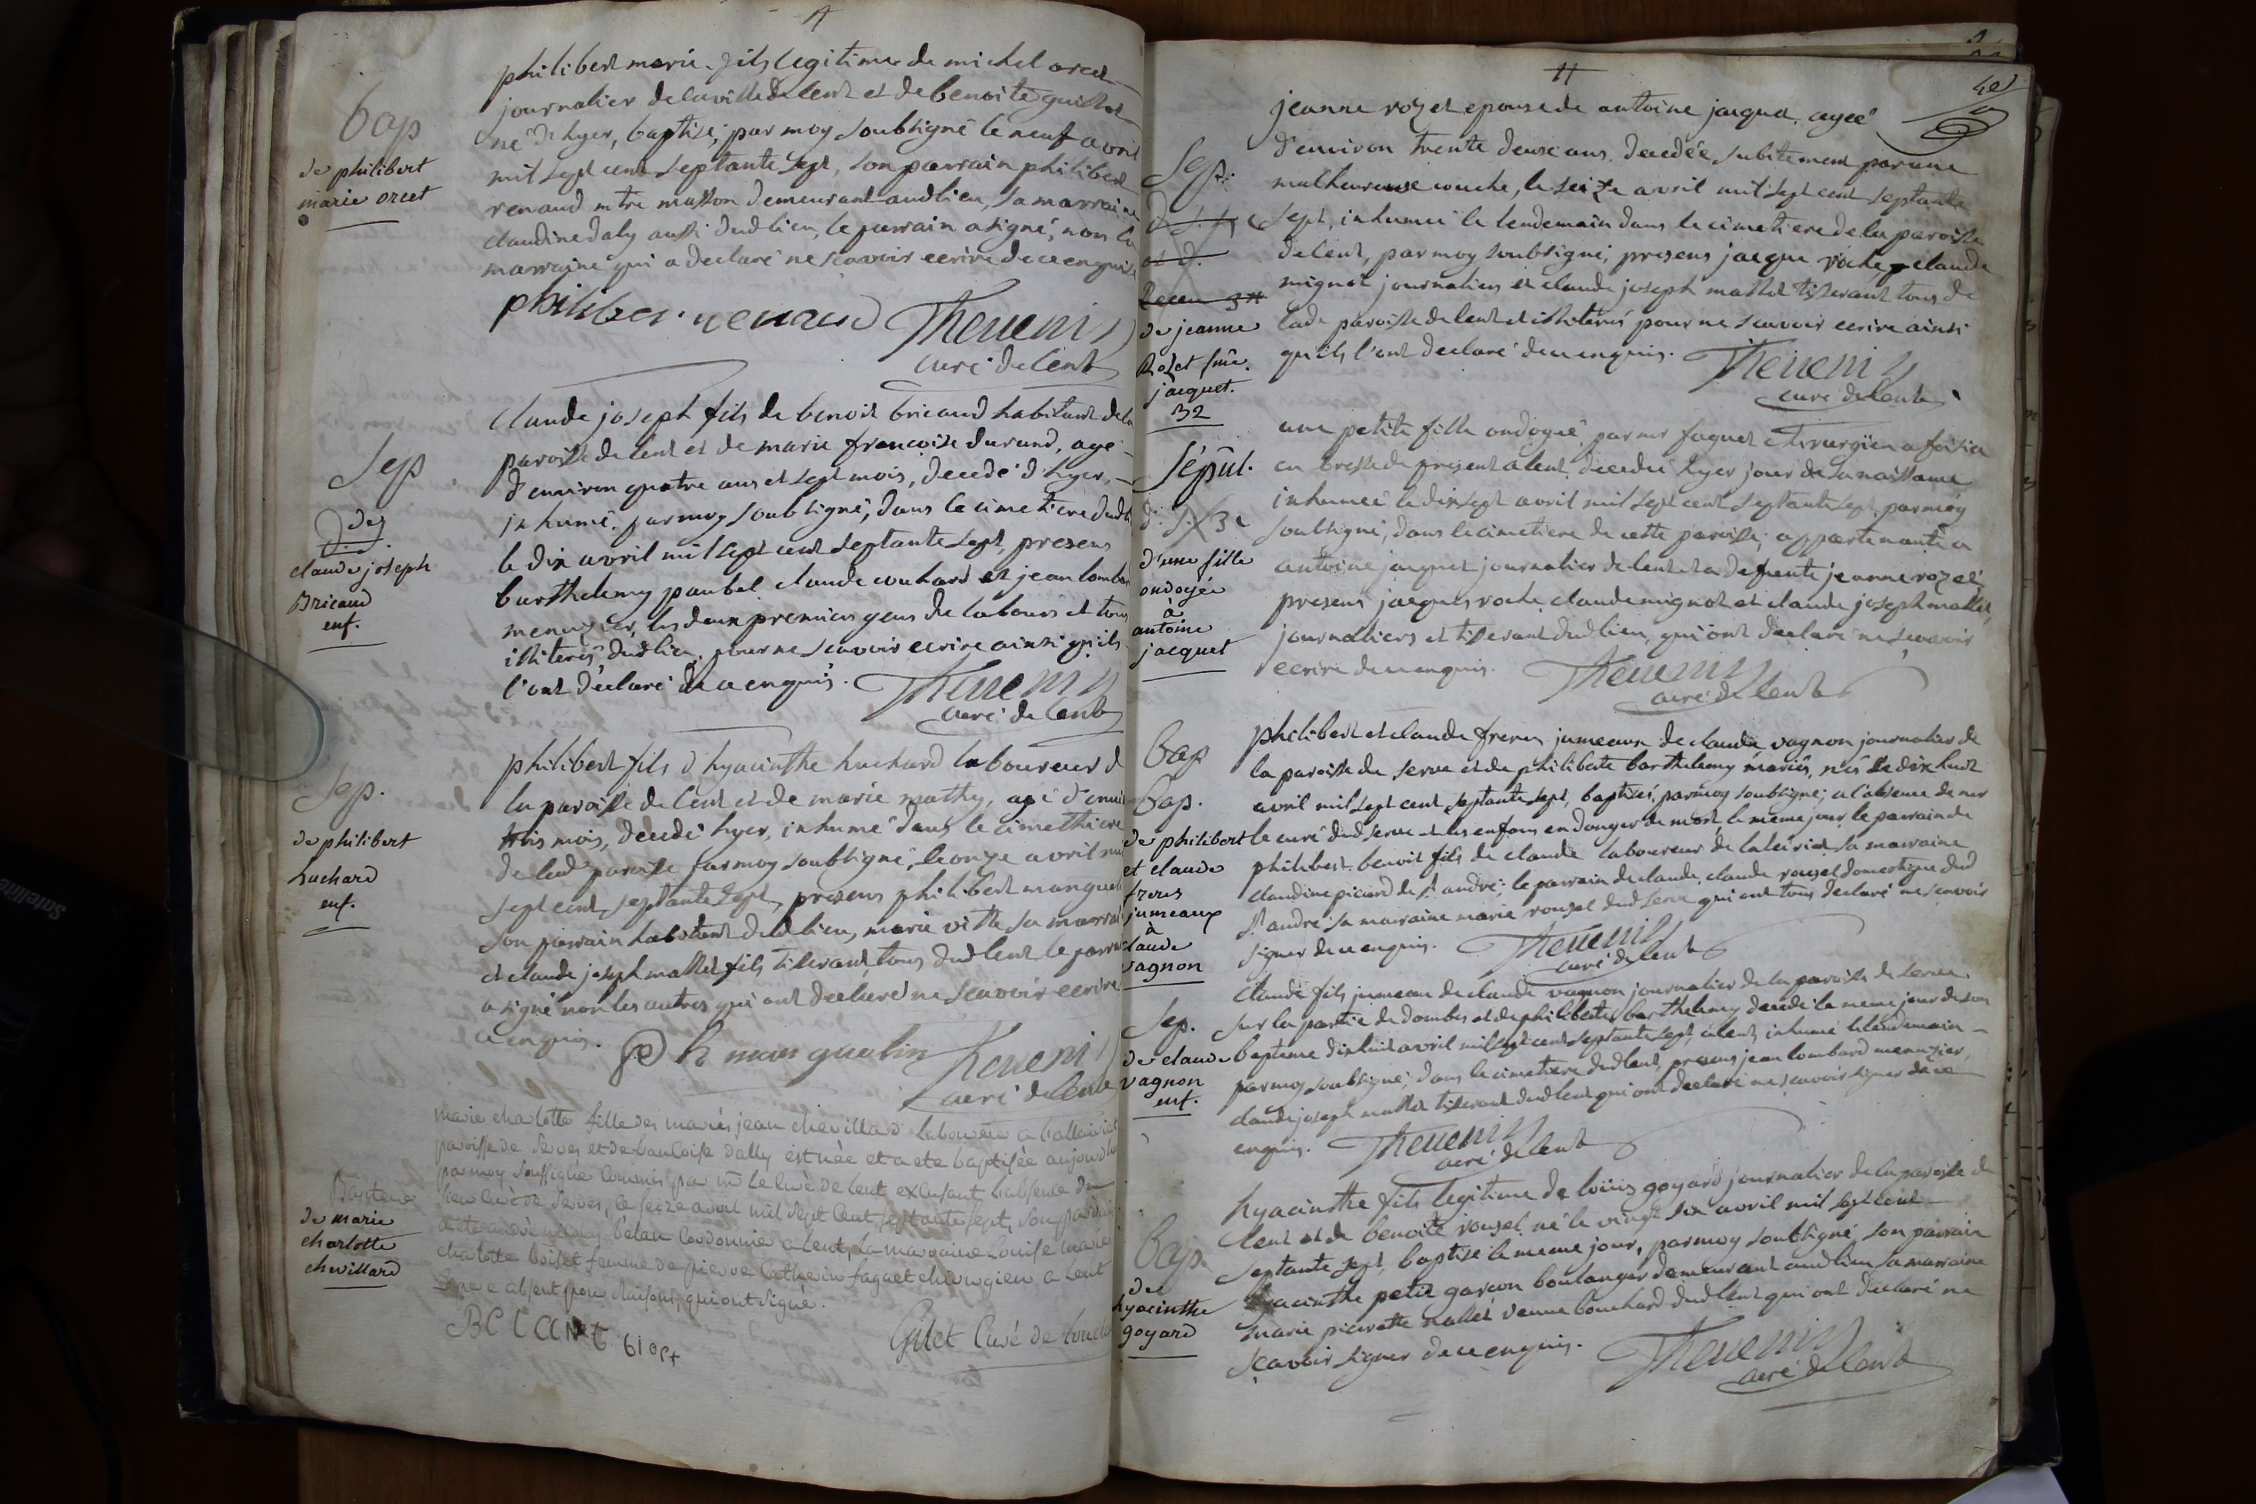 Bap
de philibert
marie orcet
philibert marie fils legitime de michel orcet
journalier de la ville de lent et de benoite guillot
né d'hyer, baptisé par moy soubsigné le neuf avril
mil sept cent septante sept, son parrain philibert
renaud mtre masson demeurant audlieu, sa marraine
claudine daly aussi dudlieu, le parrain a signé, non la
marraine qui a declaré ne scavoir ecrire de ce enquise
philiber renaud Thevenin
curé de lent
Sep
de
claude joseph
Bricaud
enf.
claude joseph fils de benoit bricaud habitant de la
paroisse de lent et de marie francoise durand, agé
d'environ quatre ans et sept mois, decedé d'hyer,
inhumé par moy soubsigné, dans le cimetiere dudt
le dix avril mil sept cent septante sept, presens
barthelemy paubel claude couhard et jean lombard
menuzier, les deux premiers gens de labours et tous
illiterés, dudlieu pour ne scavoir ecrire ainsi qu'ils
l'ont déclaré de ce enquis. Thevenin
curé de lent
Sep.
de philibert
huchard
enf.
philibert fils d'hyacinthe huchard laboureur d
la paroisse de lent et de marie mathy, agé d'environ
trois mois, decedé hyer, inhumé dans le cimethiere
de lad paroisse par moy soubsigné, le onze avril mil
sept cent septante sept, presens philibert manguelin
son parrain habitant dudlieu, marie vitte sa marraine
et claude joseph mallet fils tisserant, tous dudlent le parrain
a signé non les autres qui ont declaré ne scavoir ecrire
ce enquis. ph manguelin Thevenin
curé de lent
Bapteme
de marie
charlotte
chevillard
marie charlotte fille des mariés jean chevillard laboureur a
paroisse de Serves et de francoise dally est née et a eté baptisée aujourd'hui
par moy soussigné commis par mr le curé de lent excusant l'absence du
sieur curé de Serves, ce seize avril mil sept cent septante sept, son parrain
cordonnier a lent, sa marraine Louise marie
charlotte boisset femme de pierre catherin faguet chirurgien a lent
qui ont signé.
Gilet Curé de
Sep.
de jeanne
Rozet fme
jacquet.
32
jeanne rozet epouse de antoine jacquet, agée
d'environ trente deux ans, decedée subitement par une
malheureuse couche, le seize avril mil sept cent septante
sept, inhumée le lendemain dans le cimetiere de la paroisse
de lent, par moy soubsigné, presens jacque roche, claude
mignot journaliers et claude joseph mallet tisserant tous de
lade paroisse de lent et illiterés pour ne scavoir ecrire ainsi
qu'ils l'ont declaré de ce enquis. Thevenin
curé de lent
Sépul.
d'une fille
ondoyée
à
antoine
jacquet
une petite fille ondoyée par mr faguet chirurgien a
en bresse de present a lent, decedée hyer jour de sa naissance
inhumée le dix sept avril mil sept cent septante sept, par moy
soubsigné, dans le cimetiere de cette paroisse, appartenante a
antoine jacquet journalier de lent et a defuente jeanne rozet,
presens jacques roche, claude mignot et claude joseph mallet,
journaliers et tisserant dudlieu, qui ont declaré ne scavoir
ecrire de ce enquis. Thevenin
curé de lent
Bap
Bap.
de philibert
et claude
freres
jumeaux
à
claude
vagnon
philibert et claude freres jumeaux de claude vagnon journalier de
la paroisse de serve et de philiberte barthelemy mariés, nés le dix huit
avril mil sept cent septante sept, baptisés par moy soubsigné, a l'absence de mr
le curé dud serve et les enfans en danger de mort, le meme jour, le parrain de
philibert benoit fils de claude laboureur de sa marraine
claudine picard de st andré; le parrain de claude, claude rousel domestique dud
st andré sa marraine marie rousel dud serve qui ont tous declaré ne scavoir
signer de ce enquis. Thevenin
curé de lent
Sep.
de claude
vagnon
enf.
claude fils jumeau de claude vagnon journalier de la paroisse de serve
sur la partie de dombes et de philiberte barthelemy decedé le meme jour de son
bapteme dix huit avril mil sept cent septante sept, a lent, inhumé le lendemain
par moy soubsigné, dans le cimetiere dudlent, presens jean lombard menuzier,
claude joseph mallet tisserant dudlent qui ont declaré ne scavoir signer de ce
enquis. Thevenin
curé de lent
Bap.
de
hyacinthe
goyard
hyacinthe fils legitime de louis goyard journalier de la paroisse de
lent et de benoite rousel, né le vingt six avril mil sept cent
septante sept, baptisé le meme jour, par moy soubsigné, son parrain
hyacinthe petit garcon boulanger demeurant audlieu sa marraine
marie pierrette mallet veuve bouchard dudlent qui ont declaré ne
scavoir signer de ce enquis. Thevenin
curé de lent